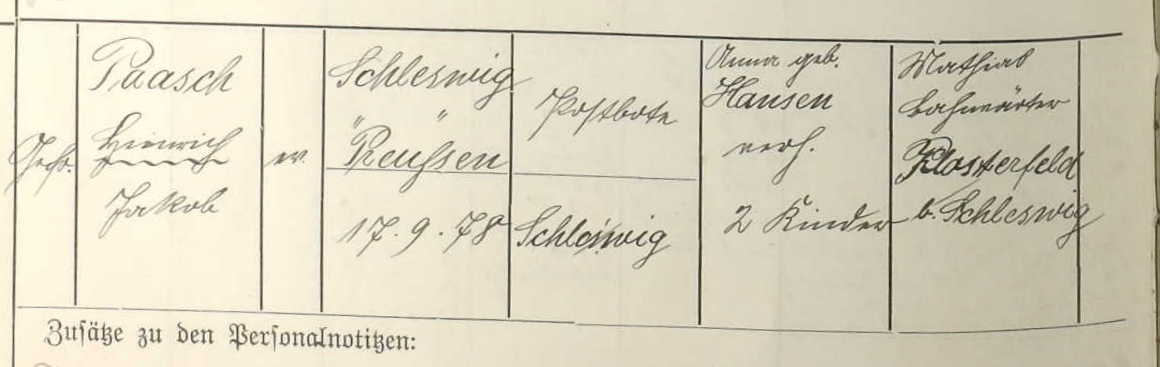 Gefr.
Paasch
Hinrich
Jakob
ev.
Schleswig
" "
Preußen
17.9.78
Postbote
Schleswig
Anna geb.
Hansen
verh.
2 Kinder
Mathias
Bahnwärter
Klosterfeld
b. Schleswig
Zusätze zu den Personalnotitzen: